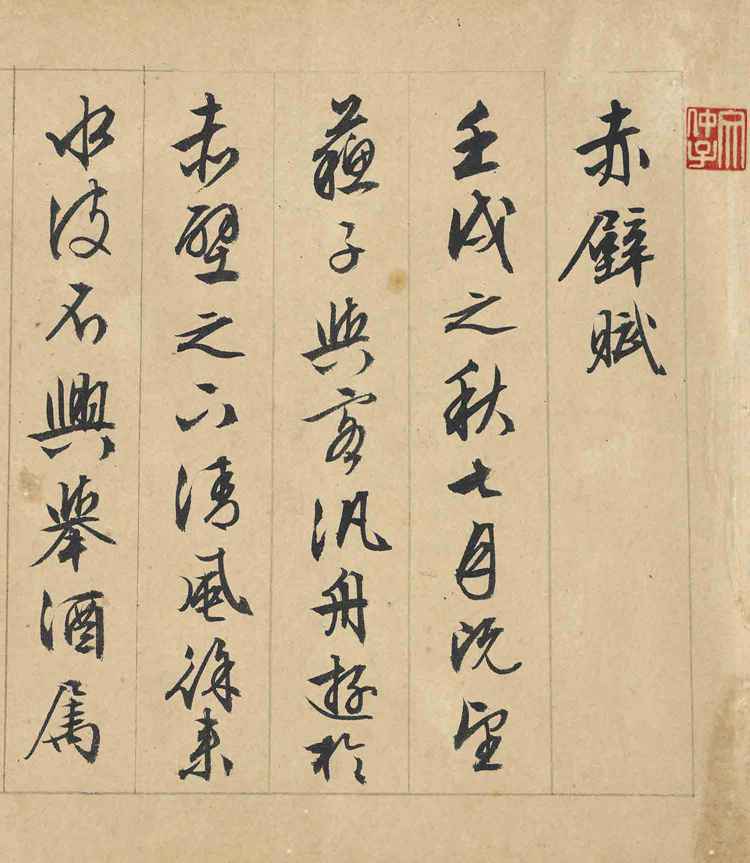 赤壁賦
壬戌之秋七月既望
蘇子與客汎舟遊於
赤壁之下清風徐来
水波不興舉酒属